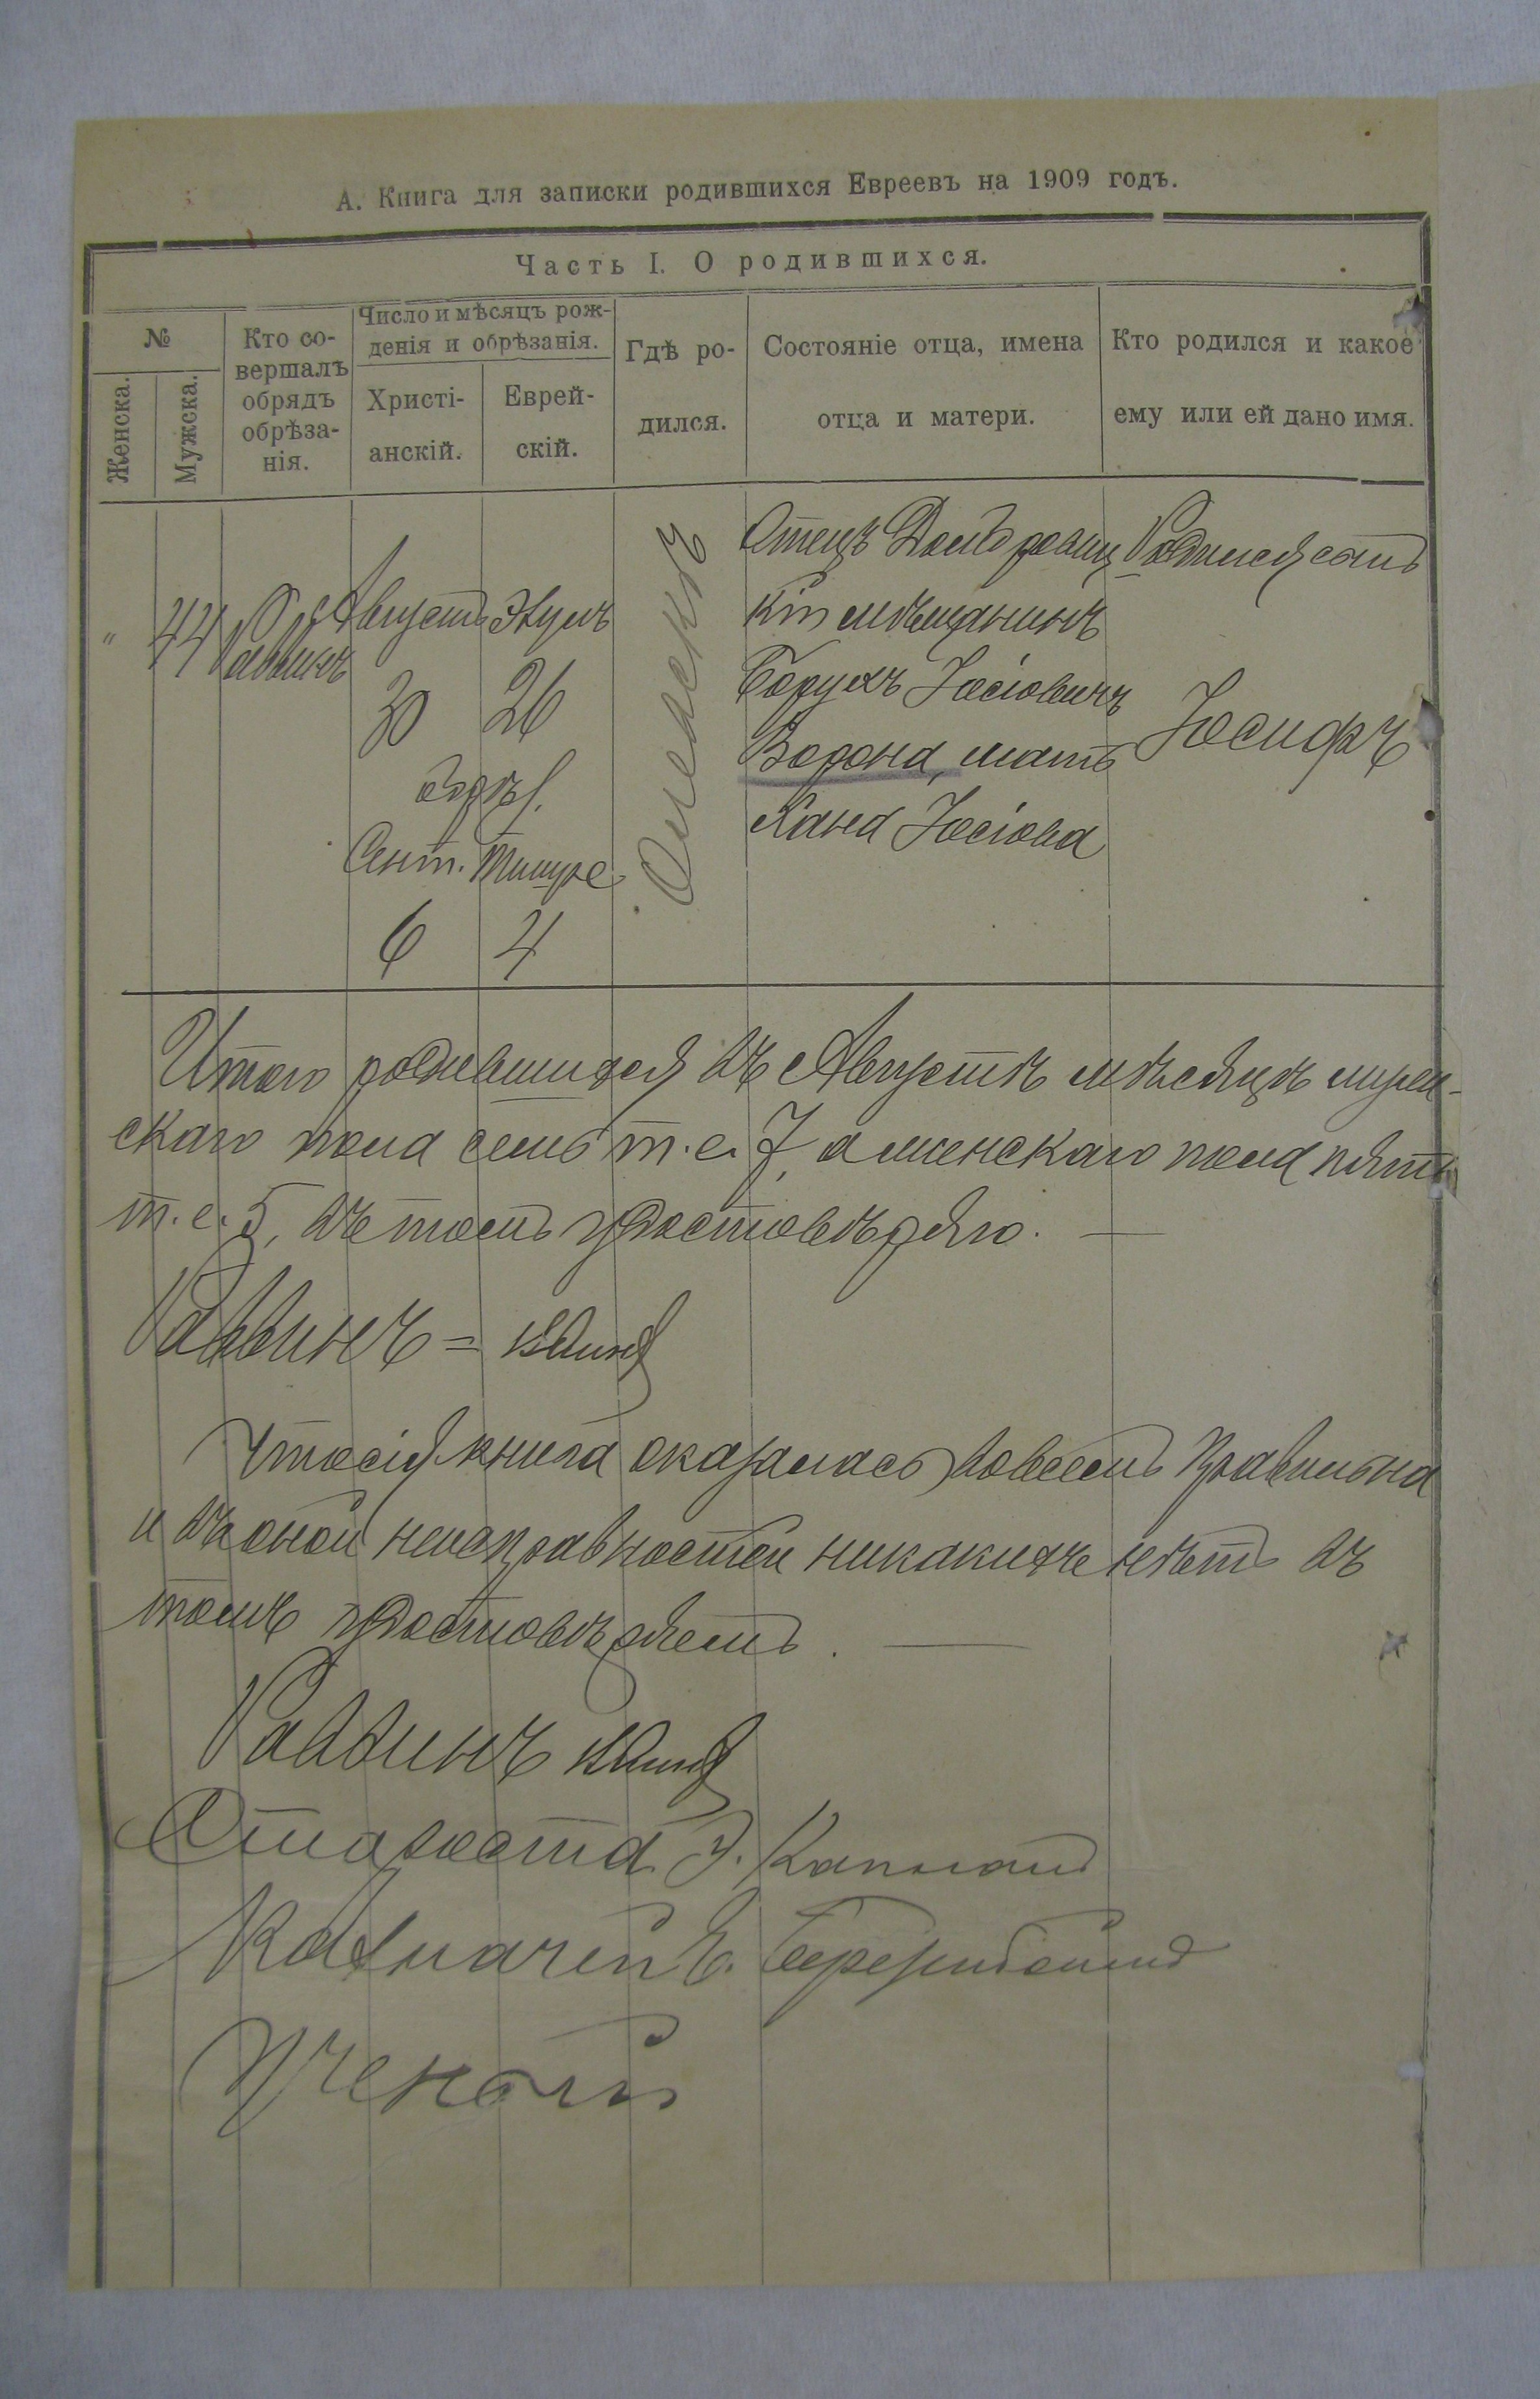 А. Книга для записки родившихся Евреевъ на 1909 годъ.
Часть I. О родившихся.
№
Женска.
Мужска.
Кто со-
вершалъ
обрядъ
обрѣза-
нія.
Число и мѣсяцъ рож-
денія и обрѣзанія.
Христі-
анскій.
Еврей-
скій.
Гдѣ ро-
дился.
Состояніе отца, имена
отца и матери.
Кто родился и какое
ему или ей дано имя.
"
44
Раввинъ
Августъ
30
обрѣз.
Сент.
6
Элулъ
26
Тишре
4
Олевскъ
Отецъ Домбровиц
кій мѣщанинъ
Борухъ Іосіовичъ
Ворона, мать
Хана Іосіова
Родился сынъ
Іосифъ
Итого родившихся въ Августѣ мѣсяцѣ муж-
скаго пола семь т. е. 7, а женскаго пола пять
т. е. 5, въ томъ удостовѣряю.
Раввинъ =
Что сія книга оказалась во всемъ правильна
и въ оной неисправностей никакихъ нѣтъ въ
томъ удостовѣряемъ.
Раввинъ
Староста
Казначей
Ученый